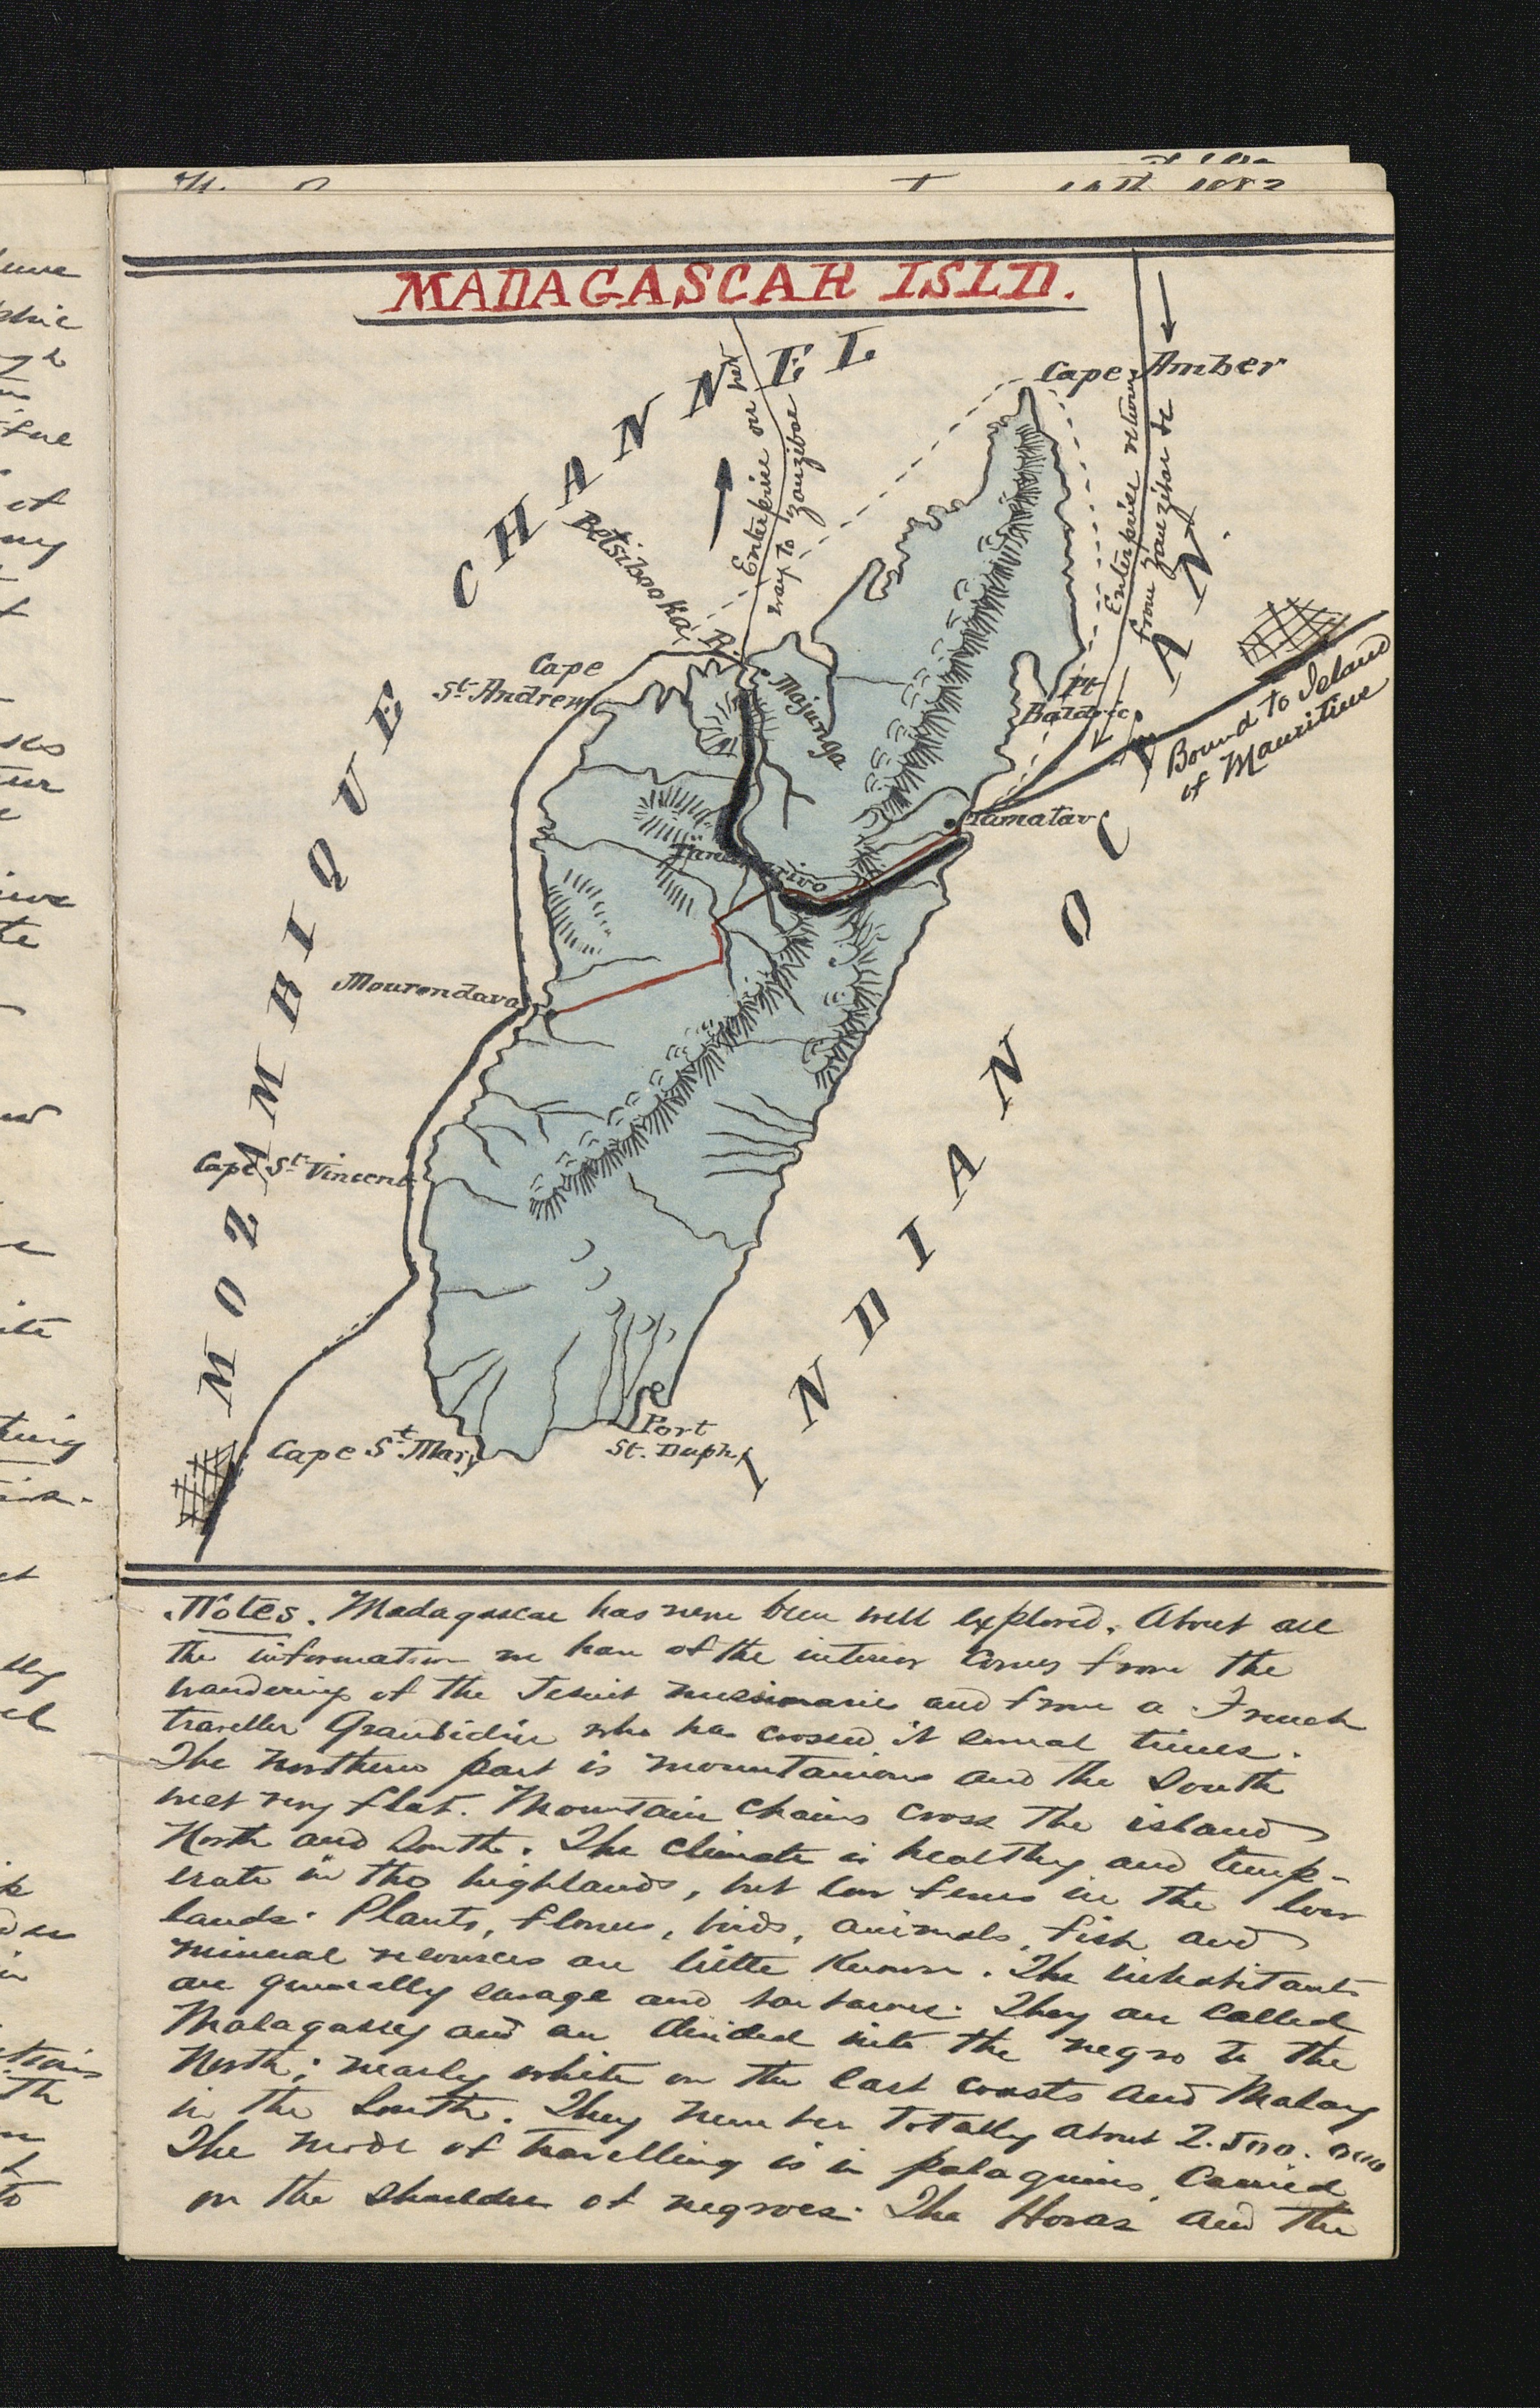 MADAGASCAR ISLD.
MOZAMBIQUE CHANNEL
INDIAN OCEAN.
Cape Amber
Enterprise on her
way to Zanzibar
Enterprise return
from Zanzibar &c
Betsibooka R.
Cape
St. Andrew
Majunga
Pt.
Bound to Island
of Mauritius
Tamatav
Mourondava
Cape St. Vincent
Cape St. Mary
Port
St. Duph.
Notes. Madagascar has never been well explored. About all
the information we have of the interior comes from the
wandering of the Jesuit missionaries and from a French
traveller Grandidier who has crossed it several times.
The northern part is mountainous and the South
west very flat. Mountain chains cross the island
North and South. The climate is healthy and temp-
erate in the highlands, but low fevers in the low
lands. Plants, flowers, birds, animals, fish and
mineral resources are little known. The inhabitants
are generally savage and barbarous. They are called
Malagassy and are divided into the negro to the
North; nearly white on the East coasts and Malay
in the South. They number totally about 2.500.000
The mode of travelling is in palaquins carried
on the shoulder of negroes. The Hovas and the